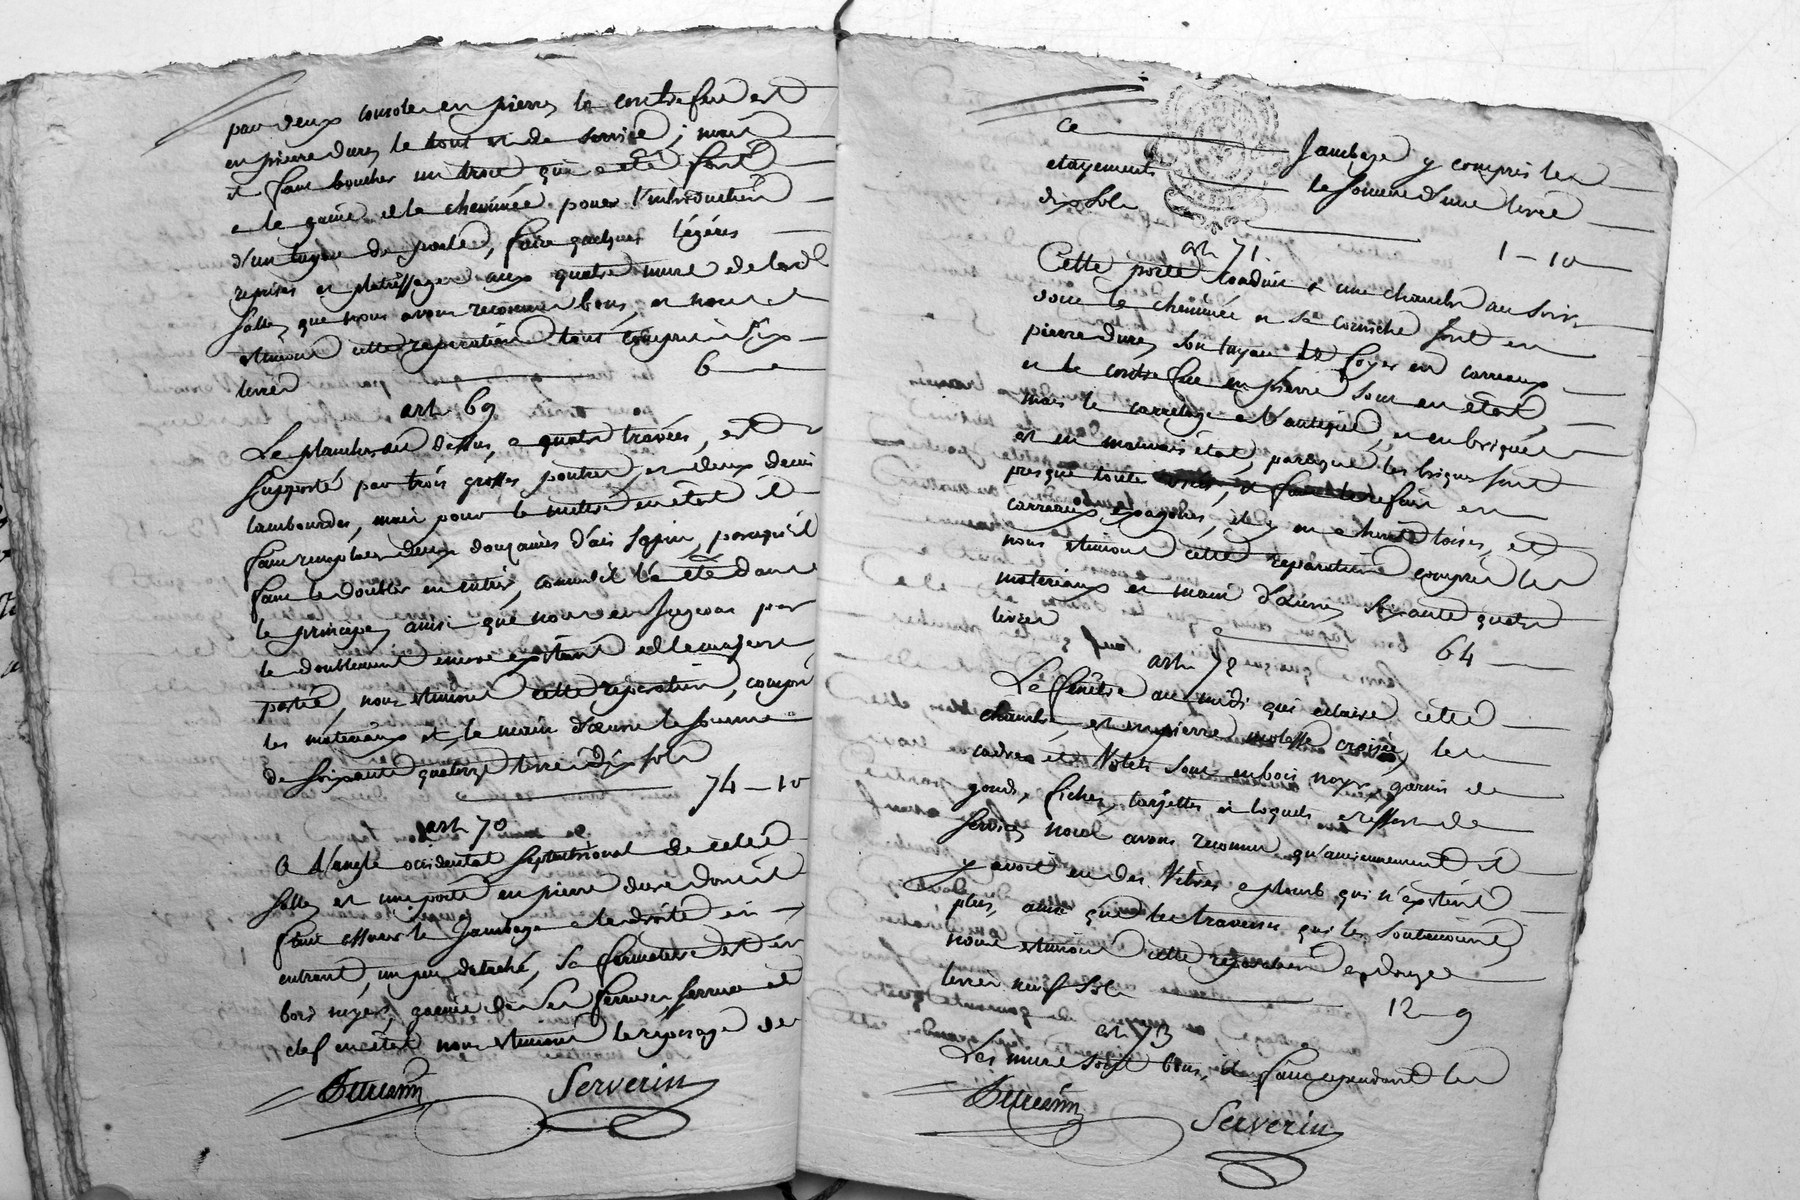 par deux consoles en pierre, le contrefeu est
en pierre dure, le tout est de service; mais
il faut boucher un trou qui a été fait
a la gaine de la cheminée pour l'introduction
d'un tuyau de poële, faire quelques légéres
reprises et platrissage aux quatre murs de lad.
salle, que nous avons reconnus bons, et nous
estimons cette reparation tout compris six
livres 6
art. 69
Le plancher au dessus, a quatre travées, est
supporté par trois grosses poutres, et deux demi
lambourdes, mais pour le mettre en état il
faut remplacer deux douzaines d'ais sapin, parcequ'il
faut le doubler en entier, comme il l'a été dans
le principe, ainsi que nous en jugeons par
le doublement encore existant de la majeure
partie, nous estimons cette réparation, compris
les matériaux et la main d'œuvre la somme
de soixante quatorze livres dix sols
74 - 10
art. 70
A l'angle occidental septentrional de cette
salle, est une porte en pierre dure dont il
faut le jambage a la droite en
entrant, un peu détaché, sa fermeture est en
bois noyer, garnie de ses ferrures serrure et
clef en état nous estimons le reposage de
Serverin
ce jambage y compris les
etayements la somme d'une livre
dix sols
1 - 10
art. 71
Cette porte conduit a une chambre au
sous la cheminée et sa corniche sont en
pierre dure, son tuyau et foyer en carreaux
et le contrefeu en pierre sont en état,
mais le carrelage a l'antique, et en briques
est en mauvais état, parceque les briques sont
presque toutes usées, il faut le refaire en
carreaux exagones, il y en a huit toises, et
nous estimons cette reparation compris les
materiaux et main d'œuvre, soixante quatre
livres 64
art. 72
La fenêtre au midi qui eclaire cette
chambre, est en pierre molasse croisée, les
cadres et volets sont en bois noyer, garnis de
gonds, fiches, targettes et loquets de
service, nous avons reconnu qu'anciennement il
y avoit eu des vitres a plomb qui n'existent
plus, ainsi que les traverses qui les soutenoient,
nous estimons cette reparation a douze
livres neuf sols
12 - 9
art. 73
Les murs sont bons, il faut cependant les
Serverin